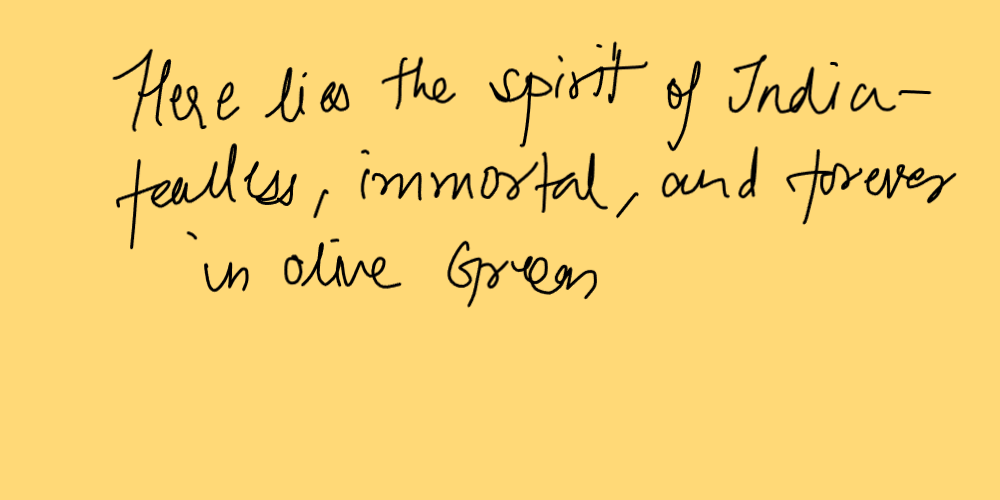 Here lies the spirit of India-
fearless, immortal, and forever
in olive Green